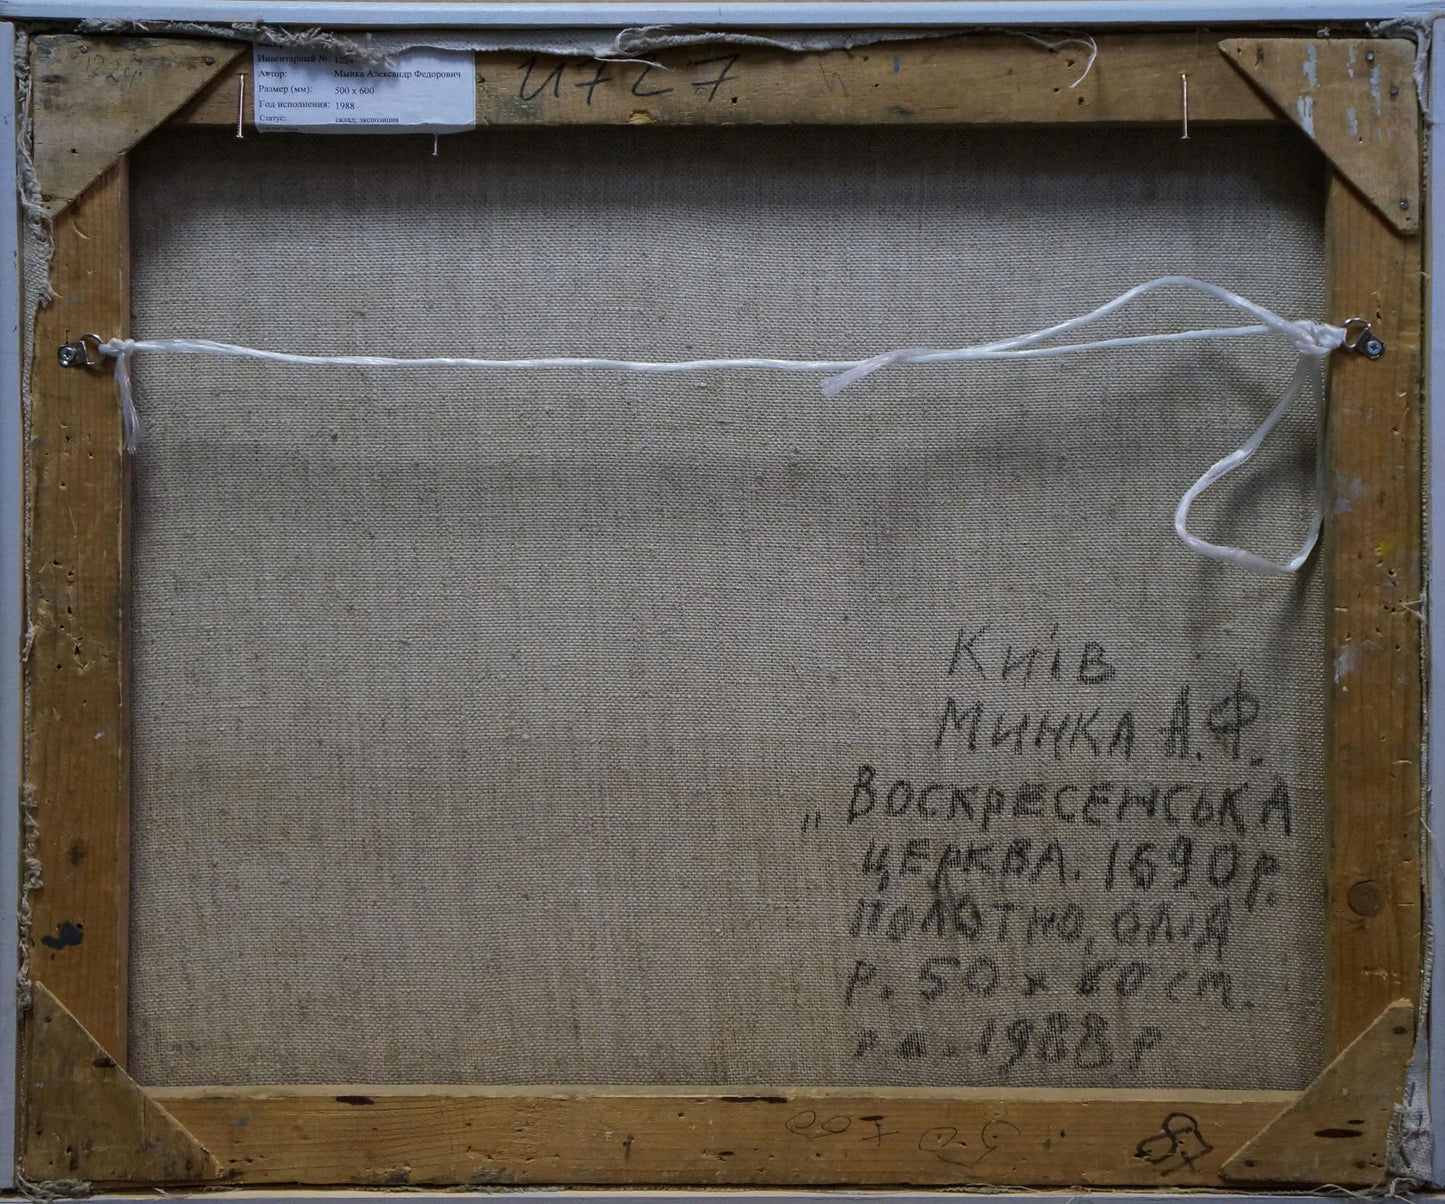 1224
Инвентарный №: 1224
Автор: Мынка Александр Федорович
Размер (мм): 500 x 600
Год исполнения: 1988
Статус: склад; экспозиция
И727
Київ
Минка А.Ф.
„Воскресенська
церква. 1690р.
Полотно, олія
р. 50 x 60 см.
1988р